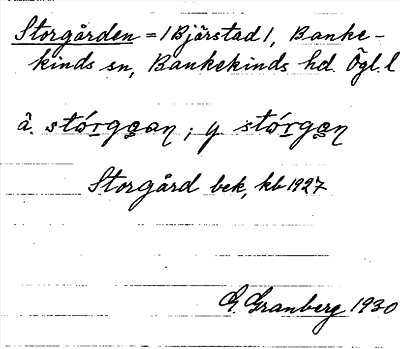 Storgården = 1 Bjärstad 1, Banke-
kinds sn, Bankekinds hd. Ögl. l
å. stórggan; y stórgən
Storgård bek, kb 1927
G. Granberg 1930